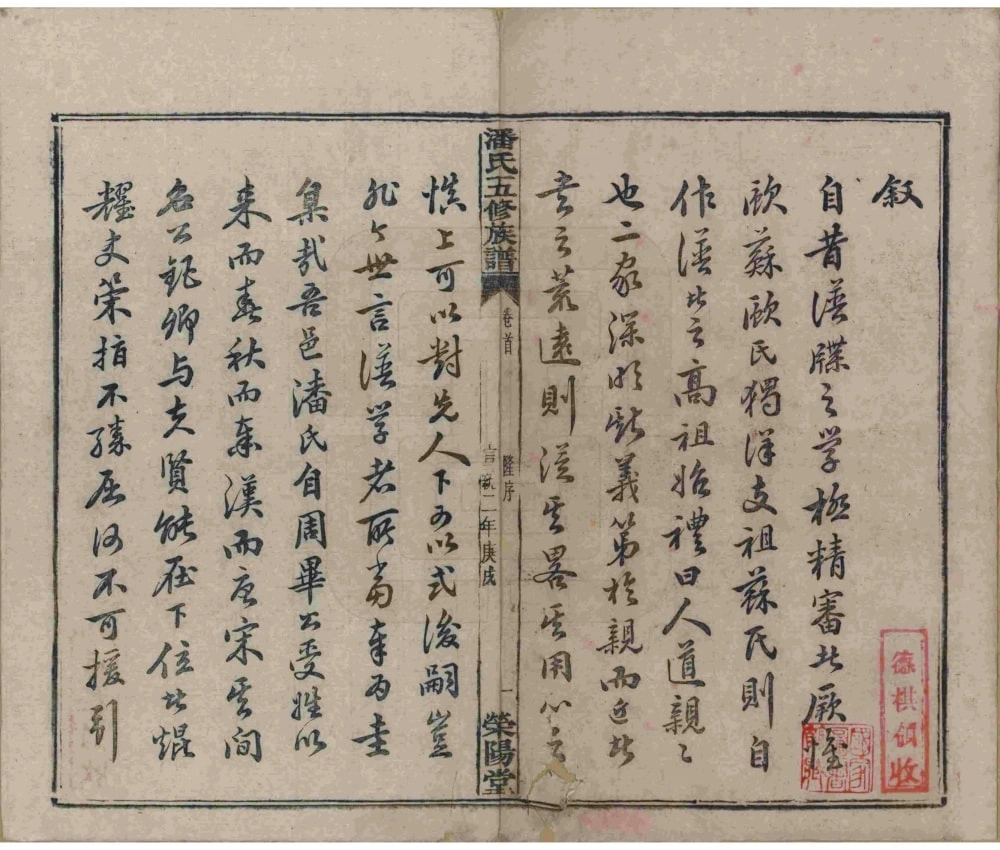 叙
自昔譜牒之學極精審者厥惟
歐蘇歐氏獨詳支祖蘇氏則自
作譜者之高祖始禮曰人道親親
也二家深明斯義第於親而近者
書之荒遠則從其畧其用心之
潘氏五修族譜
卷首
隆序
宣統二年庚戌
一
榮陽堂
慎上可以對先人下可以式後嗣豈
非今世言譜學者所當奉為圭
臬哉吾邑潘氏自周畢公受姓以
来而春秋而秦漢而唐宋其間
名公鉅卿与夫賢能在下位者焜
耀史策指不勝屈何不可援引
德棋領收